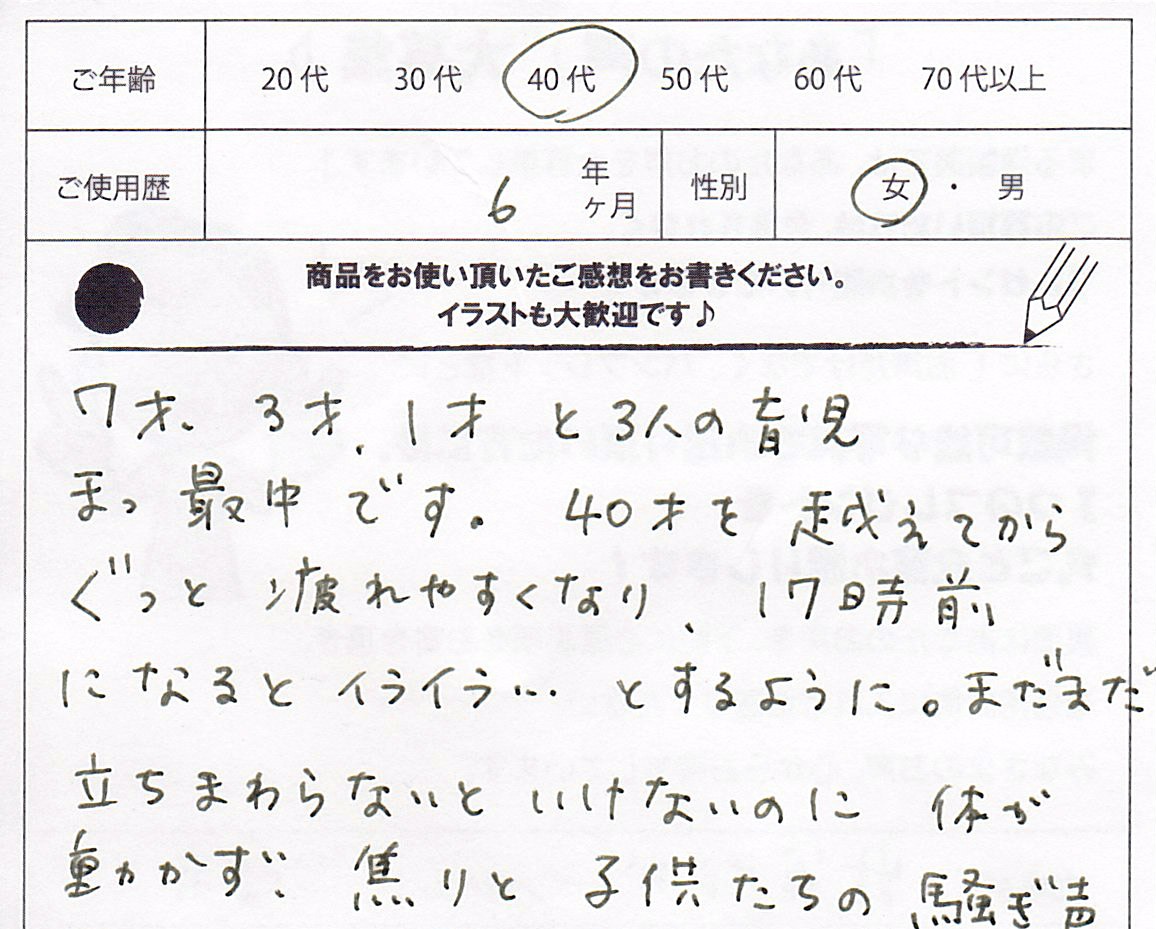 ご年齢 20代 30代 40代 50代 60代 70代以上
ご使用歴 6 年 ヶ月 性別 女・男
商品をお使い頂いたご感想をお書きください。
イラストも大歓迎です♪
7才、3才、1才と3人の育児
まっ最中です。40才を越えてから
ぐっと疲れやすくなり、17時前
になるとイライラ…とするように。まだまだ
立ちまわらないといけないのに体が
動かず、焦りと子供たちの騒ぎ声